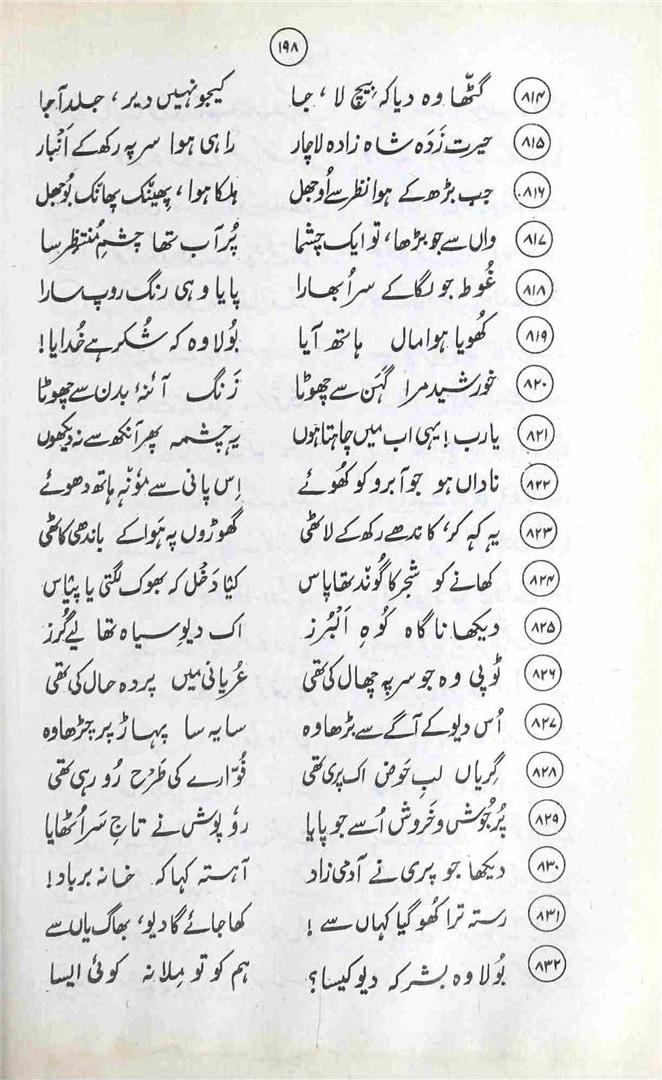 ۱۹۸
۸۱۴ گٹھا وہ دیا کہ بیچ لا ، جا کیجو نہیں دیر ، جلد آ جا
۸۱۵ حیرت زَدَہ شاہ زادہ لاچار راہی ہوا سر پہ رکھ کے اَنْبار
۸۱۶ جب بڑھ کے ہوا نظر سے اُوجھل ہلکا ہوا ، پھینک پھانک بُوجھل
۸۱۷ واں سے جو بڑھا ، تو ایک چشما پُر آب تھا چشمِ مُنتظِر سا
۸۱۸ غُوطہ جو لگا کے سر اُبھارا پایا وہی رنگ روپ سارا
۸۱۹ کھُویا ہوا مال ہاتھ آیا بُولا وہ کہ شُکر ہے خُدایا !
۸۲۰ خورشید مرا گہَن سے چھوٹا زَنگ آئنۂ بدن سے چھوٹا
۸۲۱ یارب ! یہی اب میں چاہتا ہوں یہ چشمہ پھر آنکھ سے نہ دیکھوں
۸۲۲ ناداں ہو جو آبرو کو کھُوئے اِس پانی سے مؤنہہ ہاتھ دھوئے
۸۲۳ یہ کہہ کر ، کاندھے رکھ کے لاٹھی گھوڑوں پہ ہَوا کے باندھی کاٹھی
۸۲۴ کھانے کو شجَر کا گُوند تھا پاس کیا دَخْل کہ بھوک لگتی یا پیاس
۸۲۵ دیکھا ناگاہ کُوہِ اَلْبُرز اک دیوِ سیاہ تھا لیے گُرز
۸۲۶ ٹوپی وہ جو سر پہ چھال کی تھی عُریانی میں پردہ حال کی تھی
۸۲۷ اُس دیو کے آگے سے بڑھا وہ سایہ سا پہاڑ پر چڑھا وہ
۸۲۸ گِریاں لبِ حَوض اک پری تھی فَوّارے کی طَرْح رُو رہی تھی
۸۲۹ پُر جُوش و خَروش اُسے جو پایا روٗ پوش نے تاجِ سَر اُٹھایا
۸۳۰ دیکھا جو پری نے آدمی زاد آہستہ کہا کہ خانہ برباد !
۸۳۱ رستہ ترا کھُو گیا کہاں سے ! کھا جائے گا دیو ، بھاگ یاں سے
۸۳۲ بُولا وہ بشر کہ دیو کیسا ؟ ہم کو تو مِلا نہ کوئی ایسا